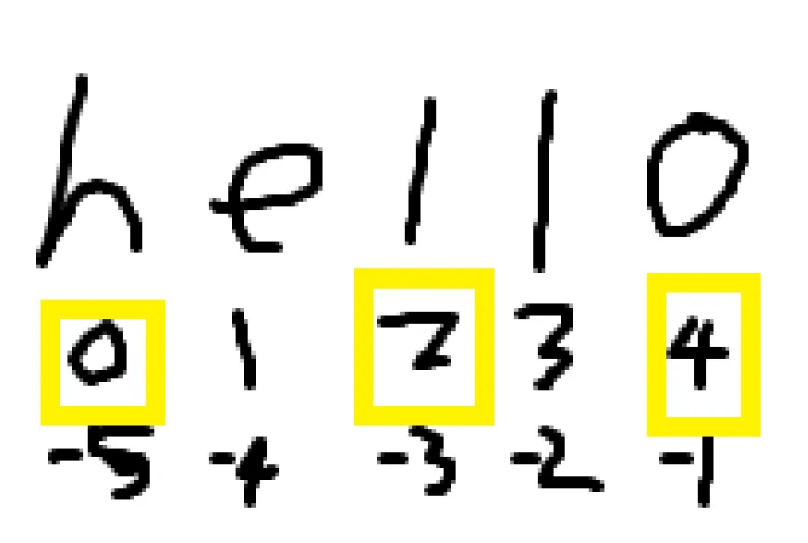 hello
0 1 2 3 4
-5 -4 -3 -2 -1